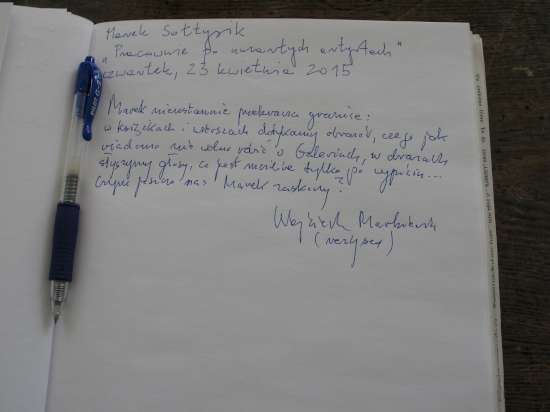 Marek Sołtysik
"Pracownie po zmarłych artystach"
czwartek, 23 kwietnia 2015
Marek nieustannie przekracza granice:
w książkach i wierszach dotykamy obrazów, czego jak
wiadomo nie wolno robić w Galeriach, w obrazach
słyszymy głosy, co jest możliwe tylko po wypiciu...
Czym jeszcze nas Marek zaskoczy?
Wojciech
(reżyser)